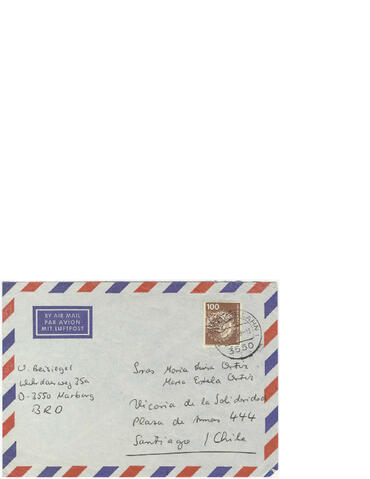 BY AIR MAIL
PAR AVION
MIT LUFTPOST
100
3550
W. Beisiegel
35a
D-3550 Marburg
BRD
Sras Maria Luisa Ortiz
Maria Estela Ortiz
Vicaria de la Solidaridad
Plaza de Armas 444
Santiago / Chile